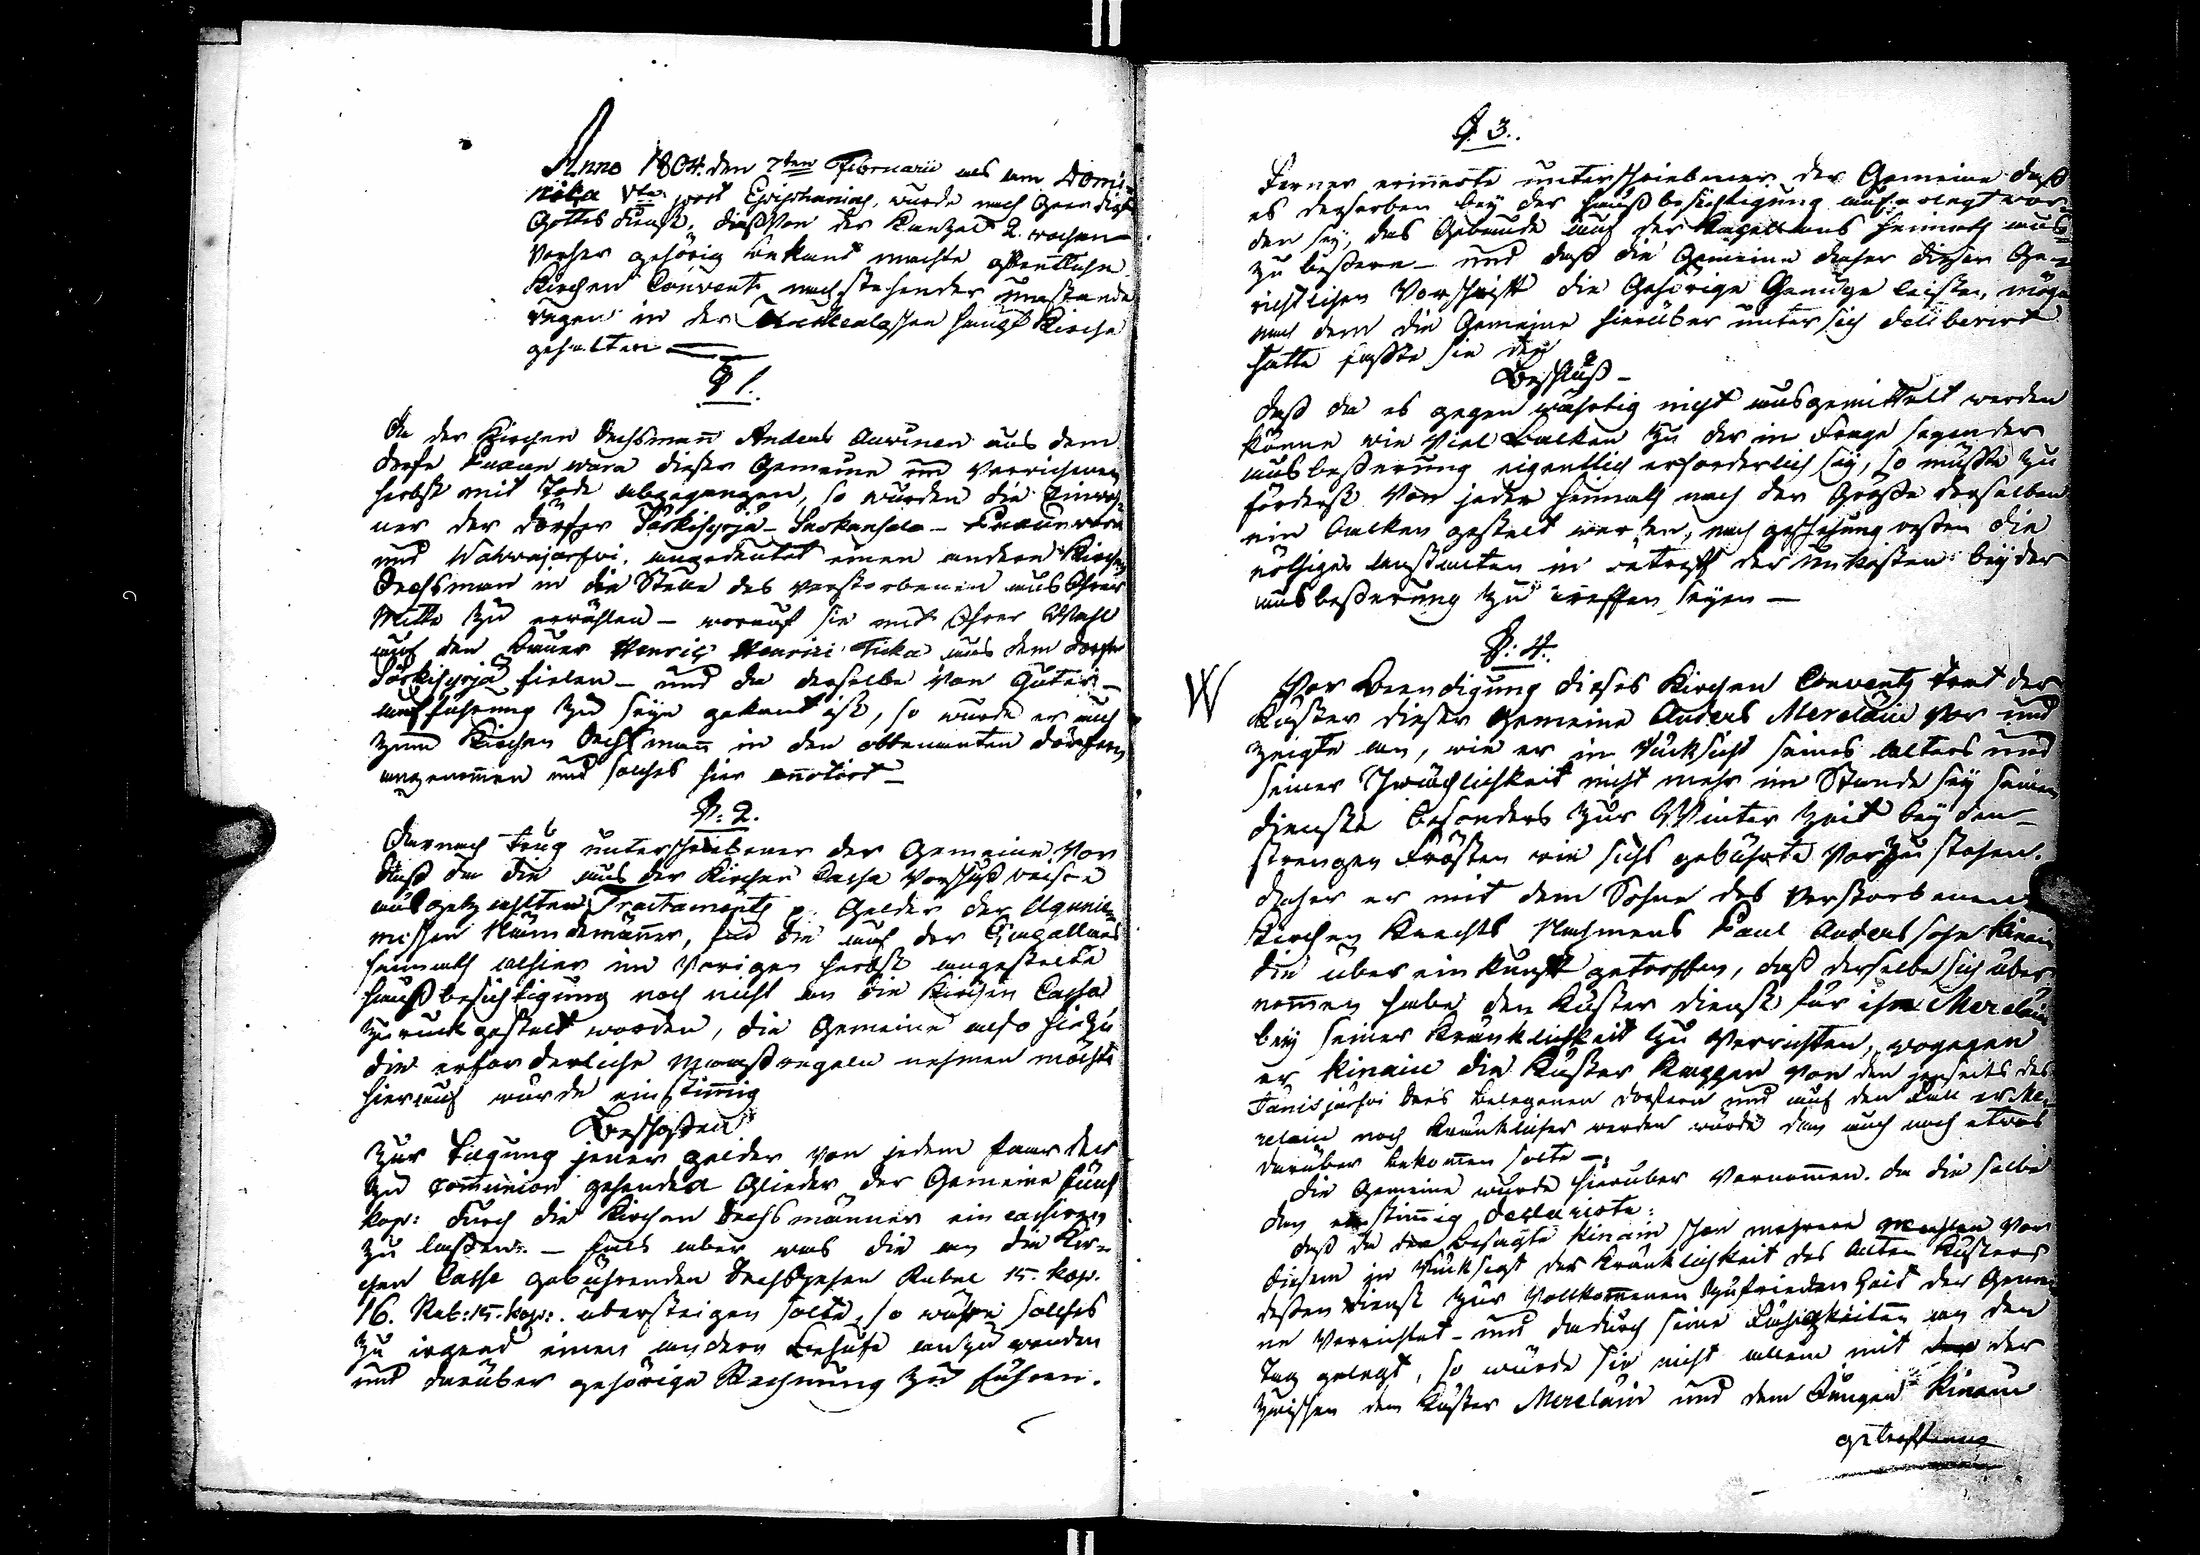 Anno 1804. den 7ten Februarii als am Domi-
nika Vta post Epiphanias, wurde nach Geendigt
Gottesdienst, dießVon der Kanzel 2. wochen
Vorher gehörig bekant machte offentliche
Kirchen Convent nachstehender umstande
wegen in der haupt Kirche
gehalten
§ 1.
Da der Kirchen Sechsmañ Anders Aurinen aus dem
dorfe wara dieser Gemeine im Verwichenen
herbst mit Tode abgegangen, so wurden die Einwoh-
ner der dörfer Särkisyrjä - Laskanhala -
und angedeutet einen andern Kirchen
Sechsman in die Stelle des verstorbenen aus Ihrer
Mitte zu erwählen - worauf sie mit Ihrer Wahl
auf den Bauer Henric Henrici Ticka aus dem dorfe
Särkisyrjä fielen - und da derselbe von Guter
aufführung zu seyn gekant ist, so wurde er auch
zum Kirchen Sechsmañ in den obbenanten dörfern
angenom̅en und solches hier añotirt -
§: 2.
darnach trug unterschriebener der Gemeine Vor
daß da die aus der Kirchen Cassa Vorschuß weise
ausgezahlten Tractaments p. Gelder der
mischen Nämdemäñer, für die auf der Capellans
heimath alhier im Vorigen herbst angestelte
haußbesichtigung noch nicht an die Kirchen Cassa
Zurück gestelt worden, die Gemeine also hiezu
die erforderliche Maasregeln nehmen möchte
hierauf wurde einstim̅ig
Beschloßen
Zur Tilgung jener gelder von jedem paar der
zu Com̅union gehender Glieder der Gemeine fünf
kop: durch die Kirchen Sechsmänner ein cassiren
zu laßen. - falls aber was die an die Kir-
chen Casse gebührenden Sechszehen Rubel 15. kop.
16. Rub: 15. kop: übersteigen solte, so wäre solches
Zu irgend einen andern Behufe anzu wenden
und darüber gehörige Rechnung zu führen.
§. 3.
Ferner eriñerte unterschriebener der Gemeine daß
es derselben bey der haußbesichtigung auferlegt wor-
den sey, das Gebaude auf der Kapellans heimath aus-
zu beßern - und daß die Gemeine daher dieser Ge-
richtlichen Vorschrift die Gehörige Genüge leisten möge
nach dem die Gemeine hierüber unter sich deliberirt
hatte faßte sie den
Beschluß -
daß da es gegen wärtig nicht ausgemittelt werden
könne wie Viel Balken zu der in Frage seyender
ausbeßerung eigentlich erforderlich sey, so müßte zu
förderst Von jeder heimath nach der Größe derselben
ein Balken gestelt werden, nach geschehung deßen die
nöthigen anstalten in betreff der unkosten bey der
ausbeßerung zu treffen seyen -
§: 4.
W Vor Beendigung dieses Kirchen Convents trat der
Küster dieser Gemeine Anders Meroläin vor und
zeigte an, wie er in Rücksicht seines alters und
seiner Schwächlichkeit nicht mehr im Stande sey seinen
dienste besonders zur Winter zeit bey den
strengen Frösten wie sichs gebührte Vorzustehen.
daher er mit dem Sohne des Verstorbenen
Kirchen Knechts Nahmens Paul Anders sohn Kinain
die übereinkunft getroffen, daß derselbe sich über
nom̅en habe den Küster dienst für ihn Meroläin
bey seiner Kränklichkeit zu Verrichten, wogegen
er Kinain die Küster Kappen Von den jenseits des
Jänisjärfwi Sees belegenen dörfern und auf den Fall er Me-
roläin noch kränklicher werden würde dan auch noch etwas
darüber bekom̅en solte -
Die Gemeine wurde hierüber Vernom̅en. da die selbe
den einstim̅ig declarirte:
daß da der besagte Kinain schon mehrere mahlen Vor
diesem in Rücksicht der Kränklichkeit des alten Küsters
deßen dienst zur Vollkom̅enen Zufriedenheit der Gemei-
ne Verrichtet - und dadurch seine Fähigkeiten an den
Tag gelegt, so würde sie nicht allein mit der
zwischen dem Küster Meroläin und dem Jungen Kinain
getroffenen